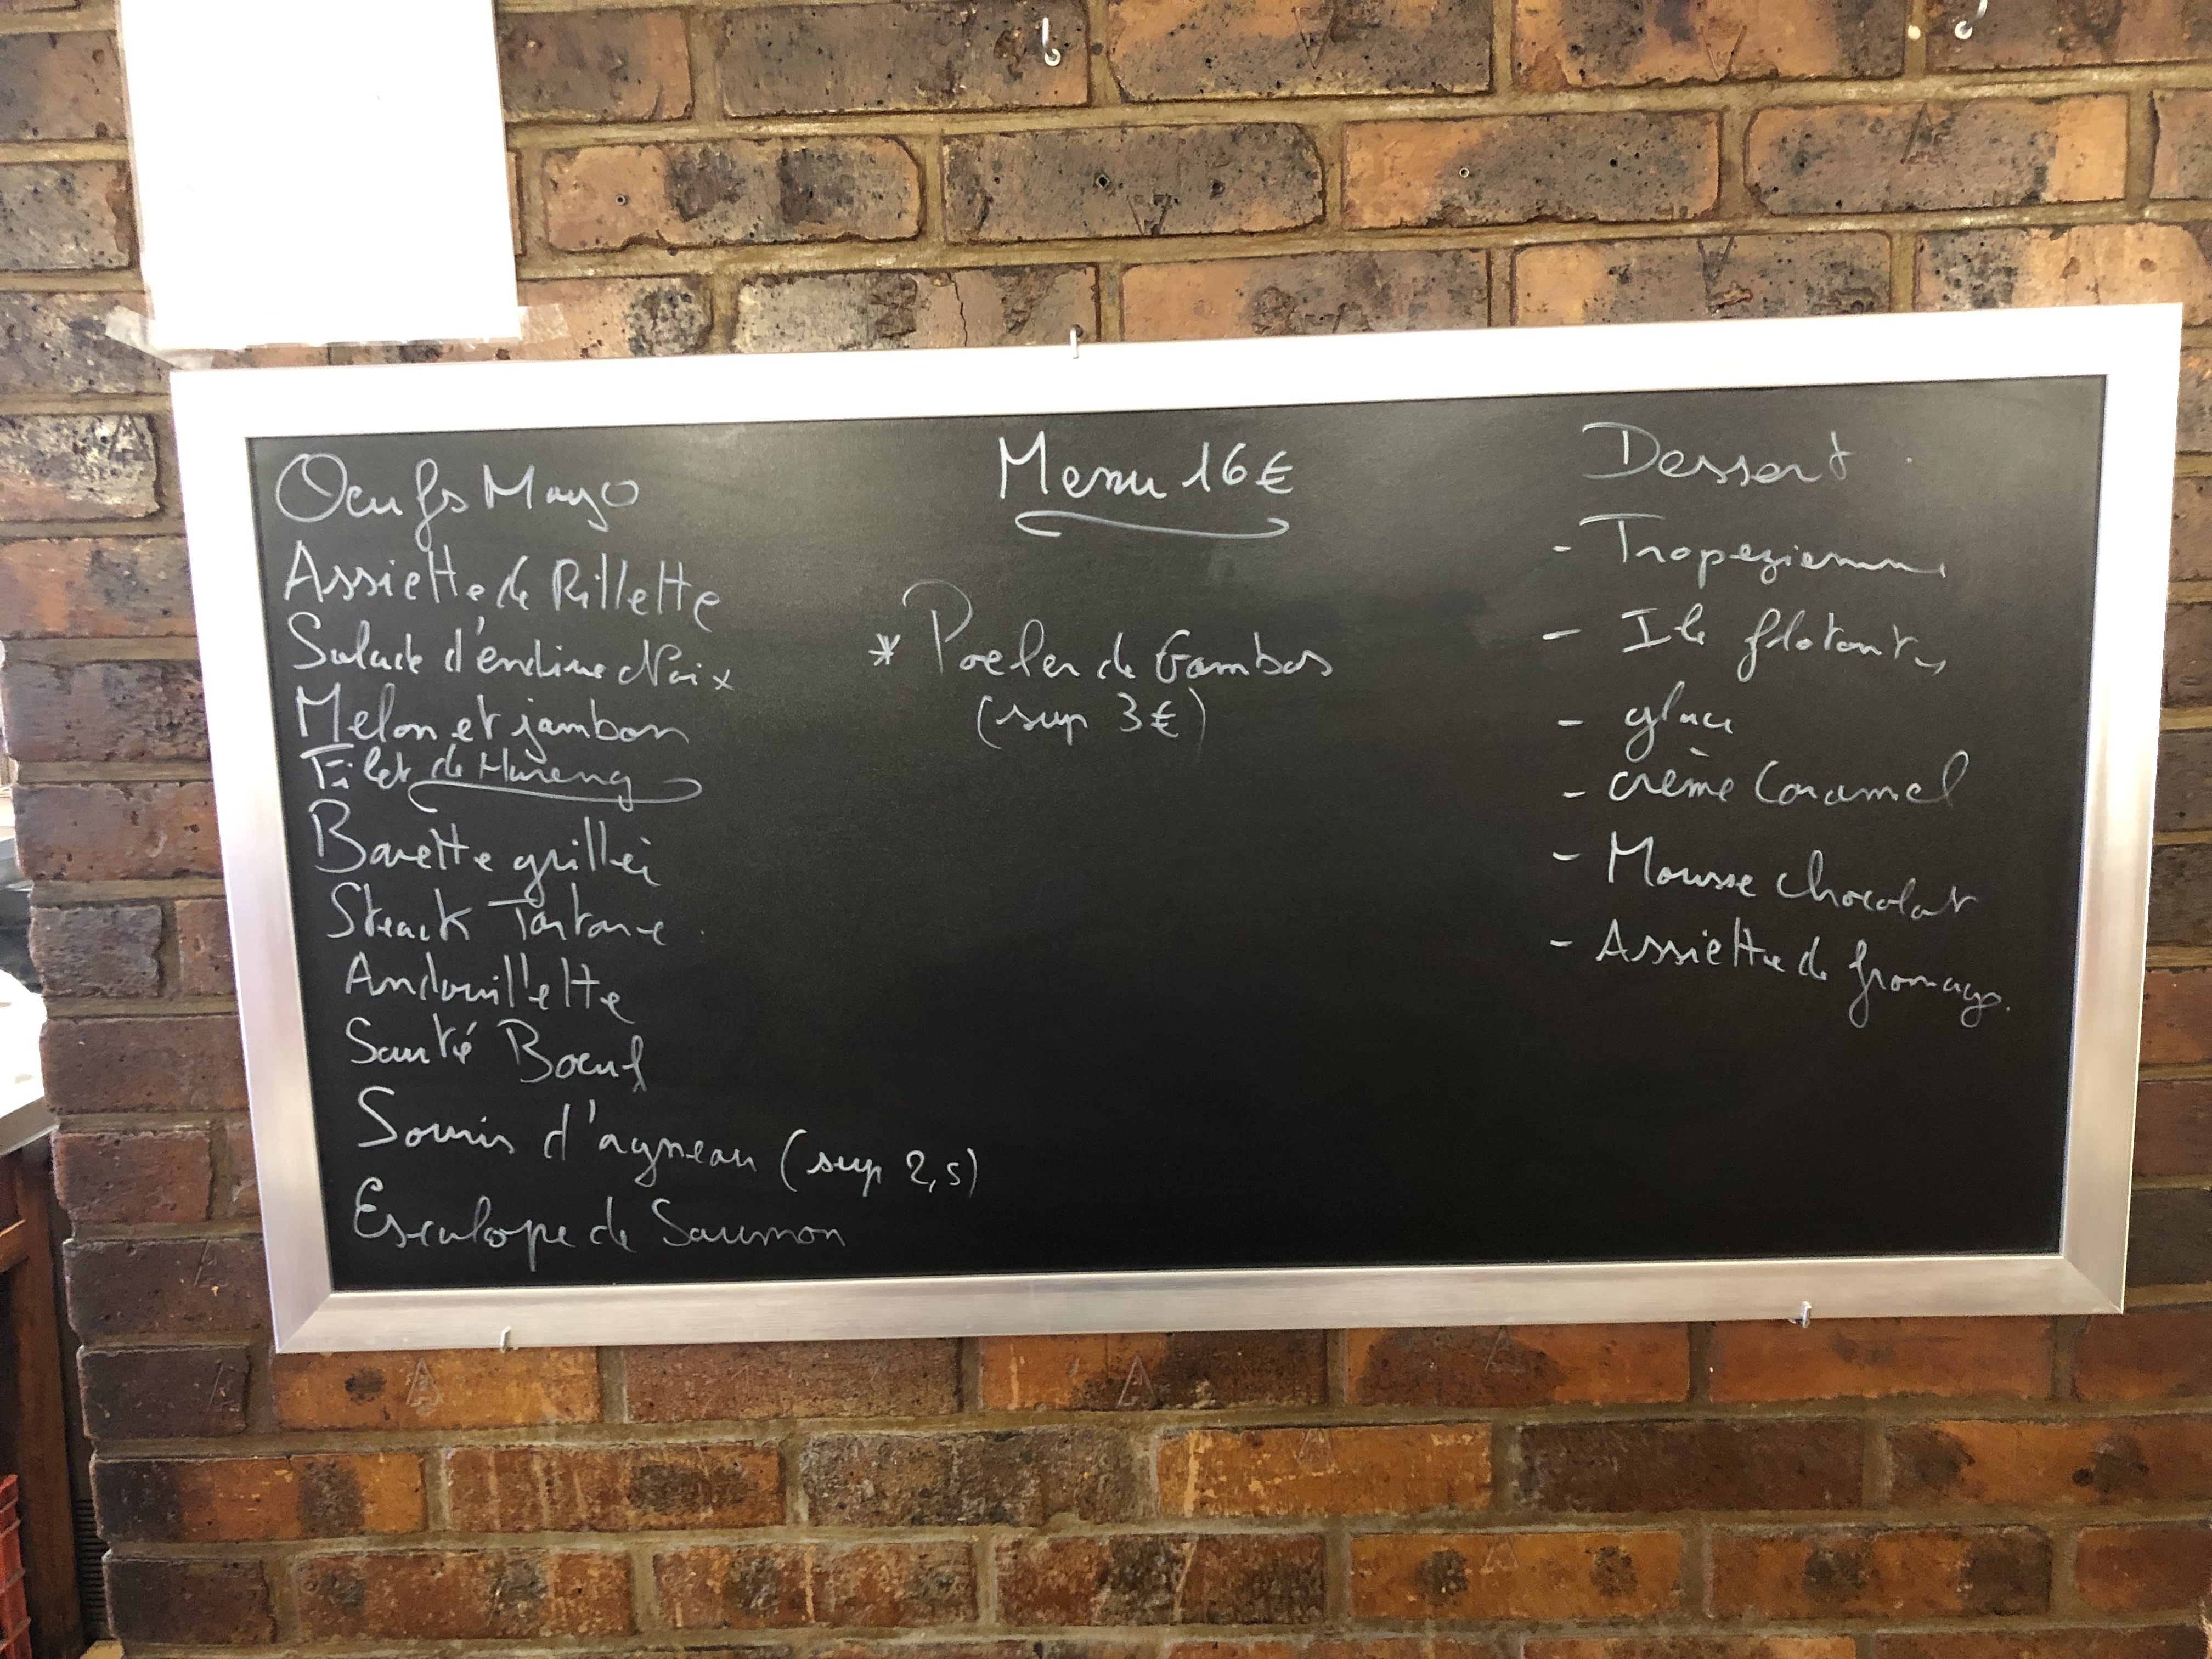 Oeufs Mayo
Assiette de Rillette
Salade d'endive Noix
Melon et jambon
Filet de Hareng
Bavette grillée
Steack Tartare
Andouillette
Sauté Boeuf
Souris d'agneau (sup 2,5)
Escalope de Saumon
Menu 16€
* Poeler de Gambas
(sup 3€)
Dessert
- Tropezienne
- Ile flotante
- glace
- crème Caramel
- Mousse chocolat
- Assiette de fromage.